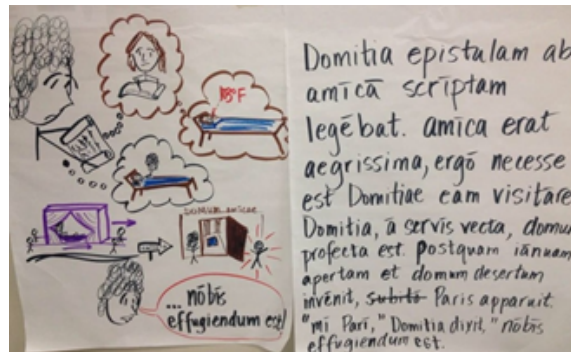 DOMUM AMICAE
... nōbīs
effugiendum est!
Domitia epistulam ab
amīcā scrīptam
legēbat. amīca erat
aegrissima, ergō necesse
est Domitiae eam visitare
Domitia, ā servīs vecta, domu
profecta est. postquam iānuam
apertam et domum desertum
invēnit, subitō Paris apparuit.
"mī Parī," Domitia dīxit, "nōbīs
effugiendum est.